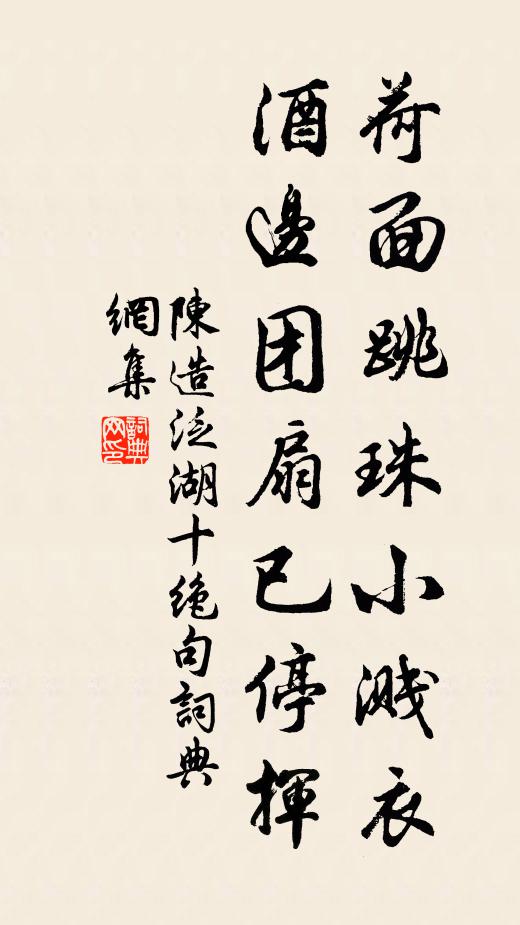 荷面跳珠小溅衣
酒邊团扇已停揮
陳造泛湖十绝句詞典
網集
詞典網印